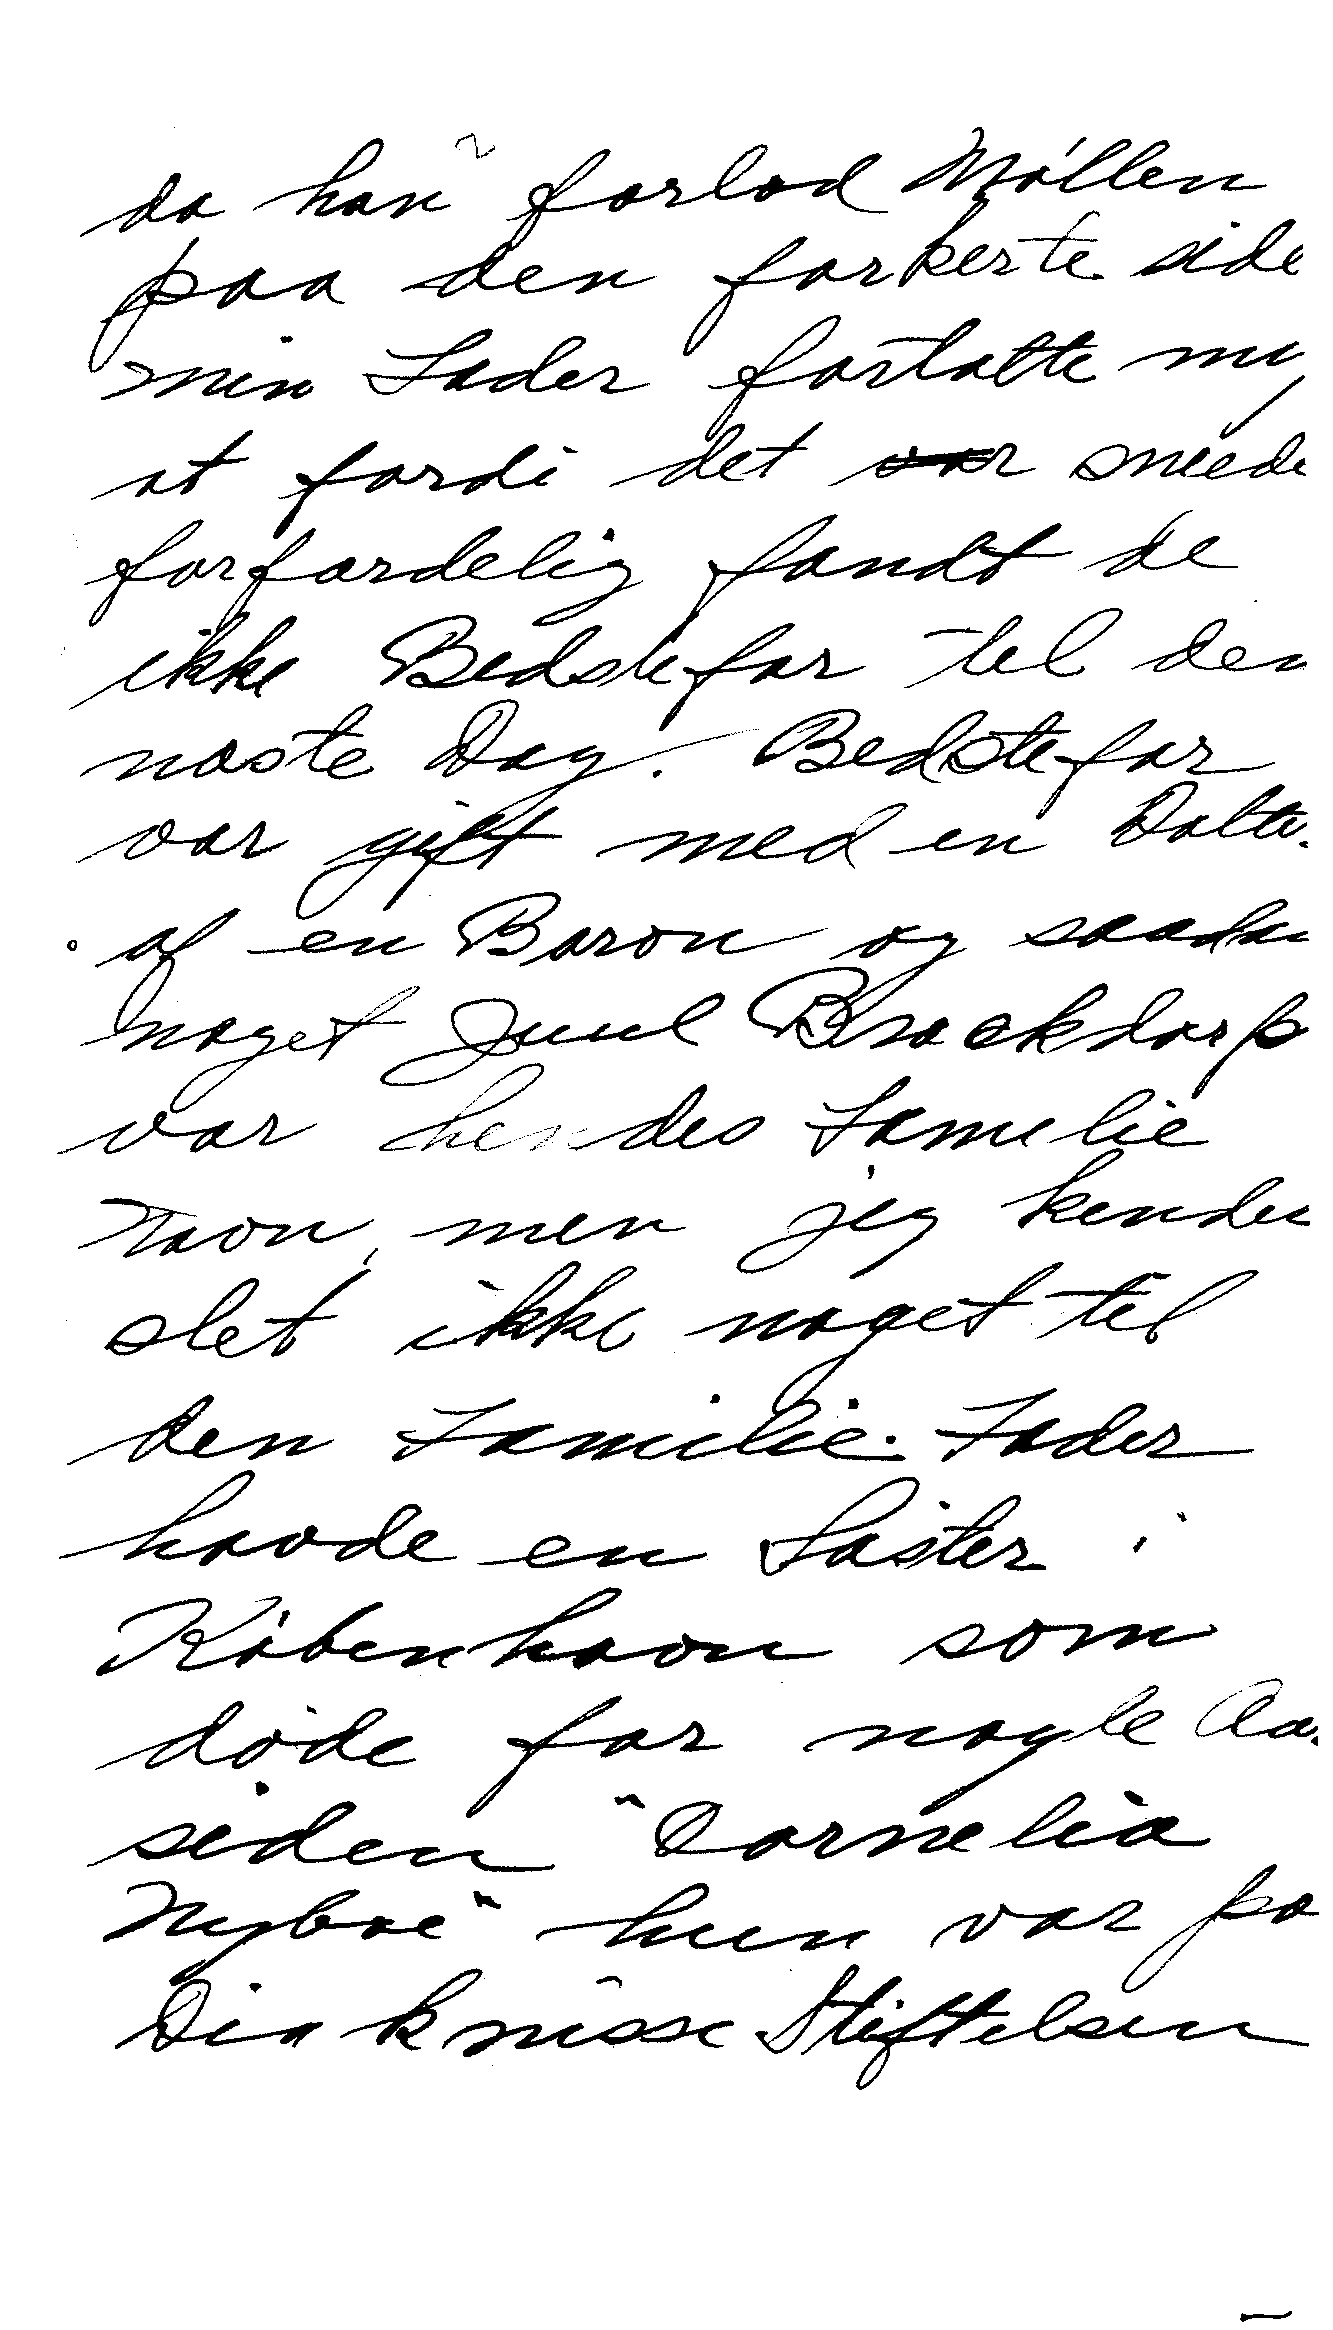 da han forlod Møllen
paa den forkerte side
min Fader fortalte mig
at fordi det sneede
forfærdelig fandt de
ikke Bedstefar til den
næste Dag. Bedstefar
var gift med en Datter
af en Baron og saadan
noget Juul Brockdorp
var hendes Familie
navn, men jeg kender
slet ikke noget til
den Familie. Fader
havde en Søster i
København som
døde for nogle Aar
siden "Cornelia
Nyboe" hun var pa
Diaknisse Stiftelsen